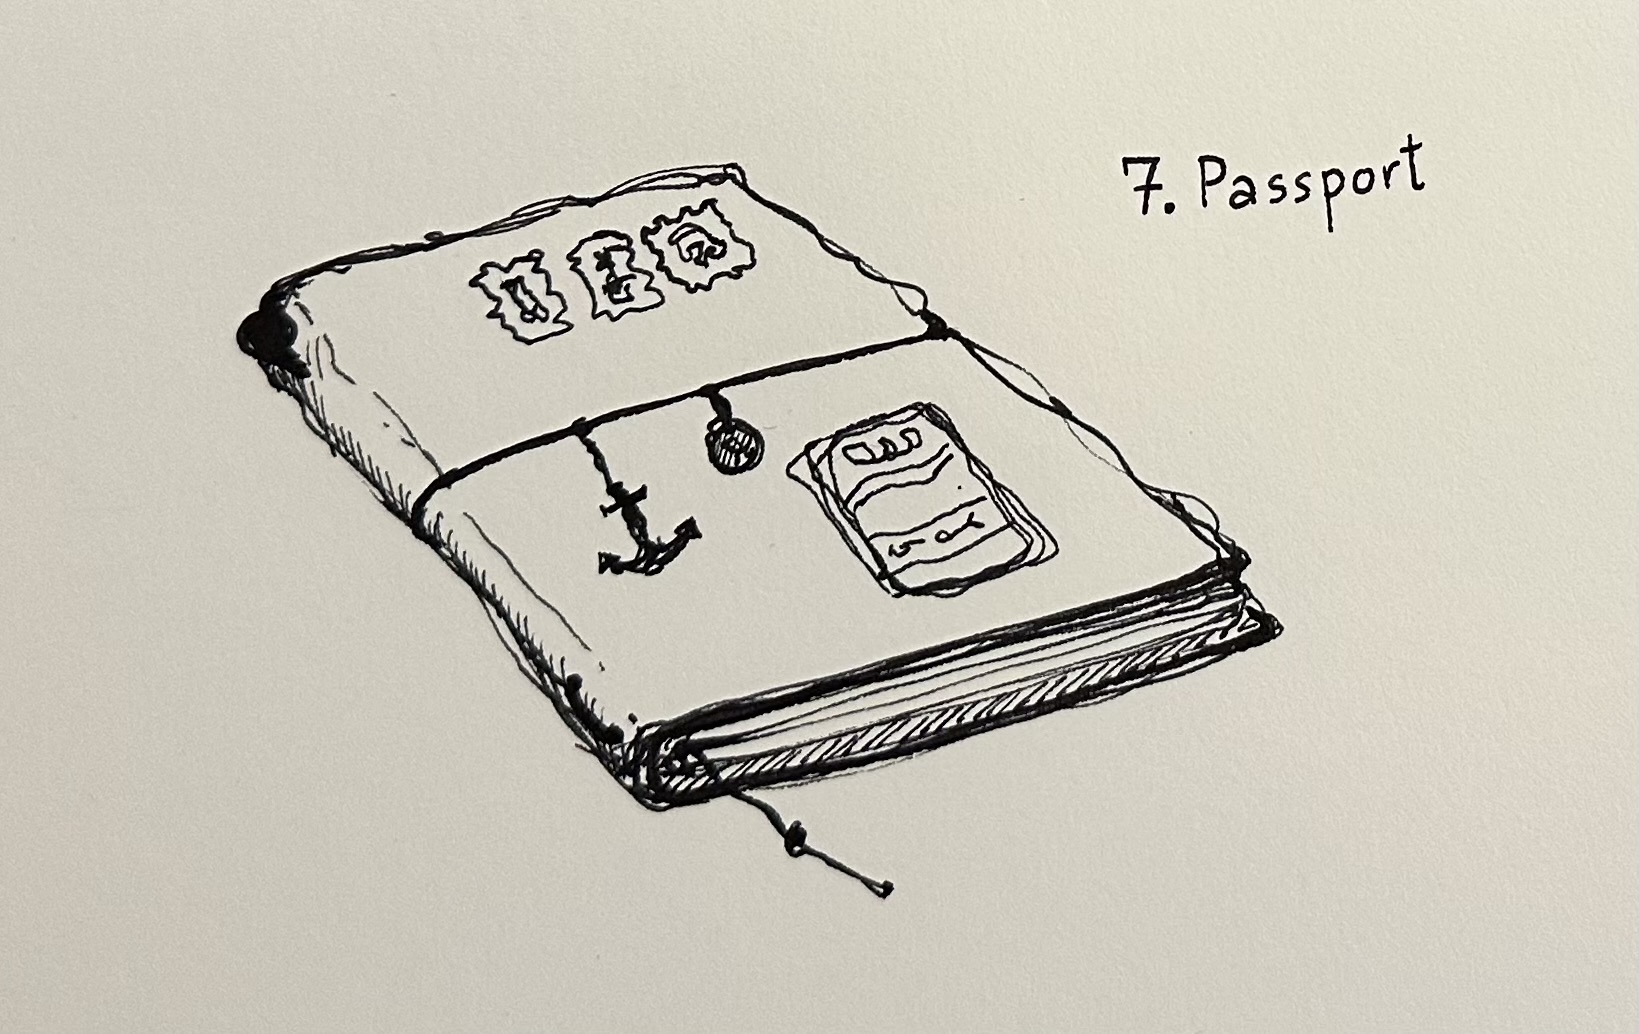 7. Passport